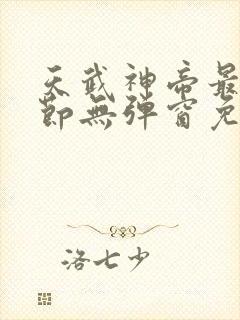 天武神帝最
節無彈窗免
洛七少